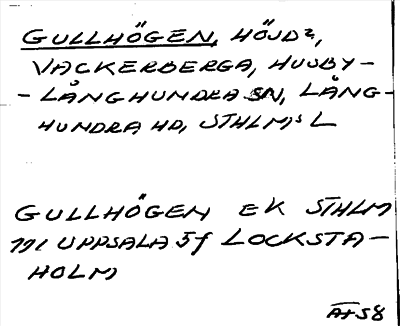 GULLHÖGEN, HÖJD?,
VACKERBERGA, HUSBY-
- LÅNGHUNDRA SN, LÅNG-
HUNDRA HD, STHLM:S L
GULLHÖGEN EK STHLM
191 UPPSALA 5f LOCKSTA-
HOLM
A+S8